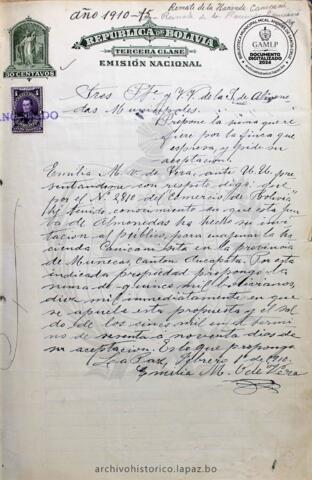 año 1910-15
Remate de la Hacienda Camicani
REPUBLICA DE BOLIVIA
TERCERA CLASE
EMISIÓN NACIONAL
50 CENTAVOS
GAMLP
DOCUMENTO
DIGITALIZADO
2024
das Municipales.
Propone la suma que re
fiere por la finca que
espresa, y pide su
aceptacion.
Emilia M. v. de Vera, ante U.U. pre
sentandome con respeto digo: que
por el Nº 2810 del Comercio de Bolivia
he tenido conocimiento de que esta Jun
ta de Almonedas ha hecho su invi
tacion al público, para comprar la ha
cienda Camicani sita en la provincia
de Muñecas, canton Aucapata. Por esta
indicada propiedad propongo la
suma de quince mil bolivianos,
diez mil inmediatamente en que
se apruebe esta propuesta y el sal
do de los cinco mil en el térmi
no de sesenta o noventa dias de
su aceptacion. Es lo que propongo
La Paz, Febrero 1º de 1910.
Emilia M. V. de Vera
archivohistorico.lapaz.bo